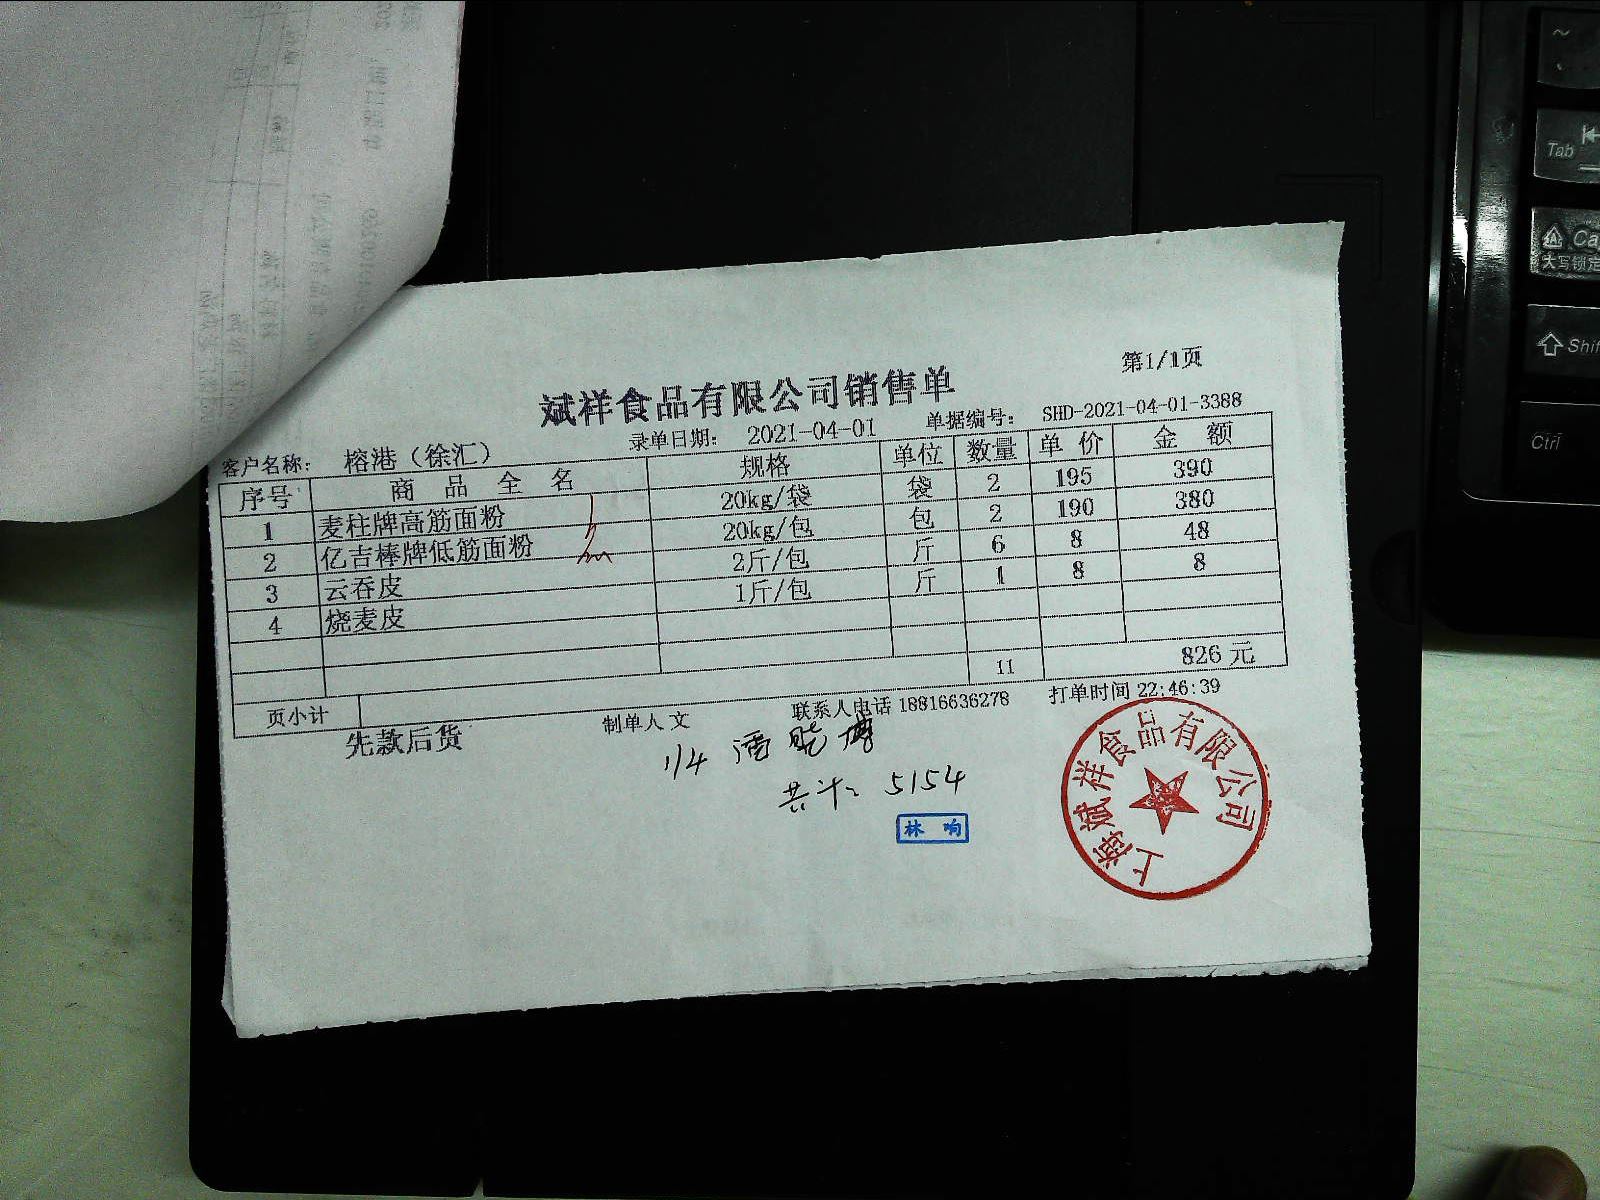 第1/1页
斌祥食品有限公司销售单
客户名称: 榕港（徐汇） 录单日期: 2021-04-01 单据编号: SHD-2021-04-01-3388
序号 商品全名 规格 单位 数量 单价 金额
1 麦柱牌高筋面粉 20kg/袋 袋 2 195 390
2 亿吉棒牌低筋面粉 20kg/包 包 2 190 380
3 云吞皮 2斤/包 斤 6 8 48
4 烧麦皮 1斤/包 斤 1 8 8
页小计 11 826 元
先款后货 制单人 文 联系人电话 18816636278 打单时间 22:46:39
1/4
共计: 5154
林响
上海斌祥食品有限公司
Tab
Ca
大写锁定
Shif
Ctrl